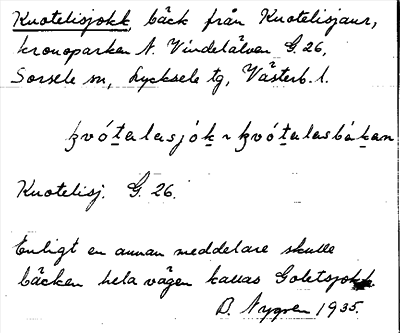 Kuotelisjokk, bäck från Kuotelisjaur,
kronoparken N. Vindelälven G. 26,
Sorsele sn, Lycksele tg, Västerb. l.
kvótalasjók ~ kvótalasbäkan
Kuotelisj. G. 26.
Enligt en annan meddelare skulle
bäcken hela vägen kallas Goletsjokk
D. Nygren 1935.